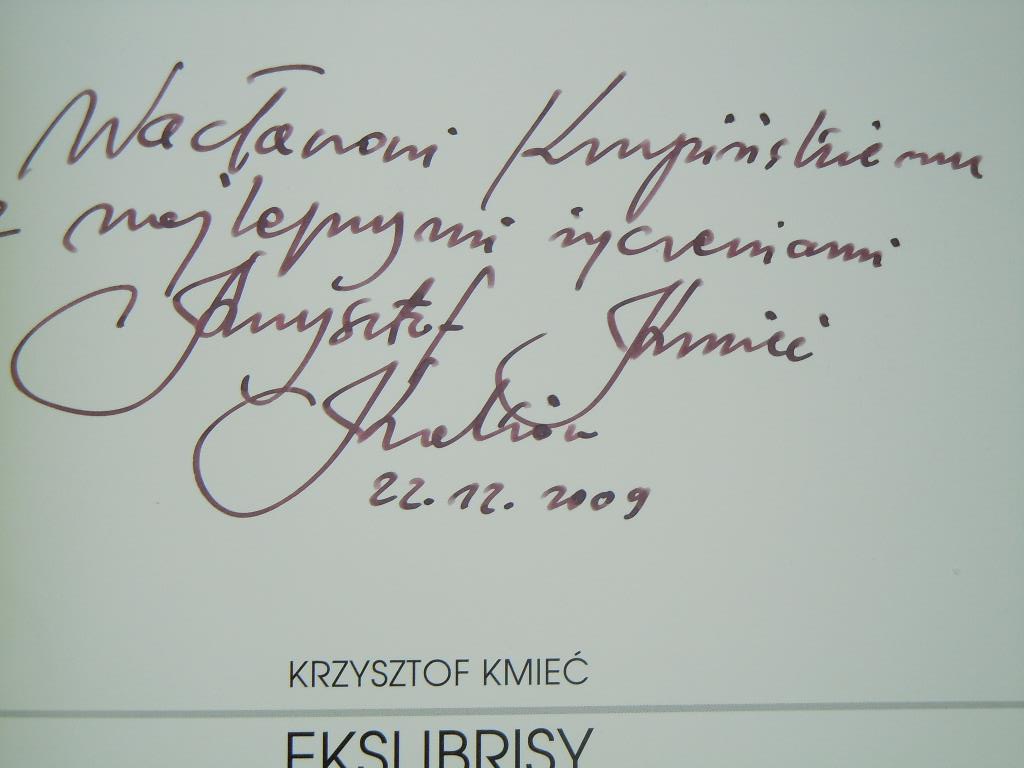 Wacławowi Krupińskiemu
z najlepszymi życzeniami
Krzysztof Kmieć
Kraków
22.12.2009
KRZYSZTOF KMIEĆ
EKSLIBRISY